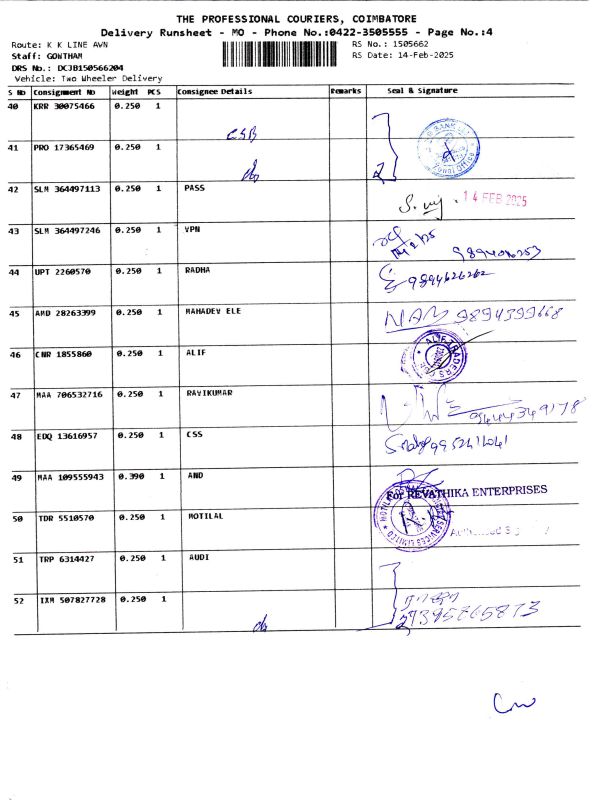 THE PROFESSIONAL COURIERS, COIMBATORE
Delivery Runsheet - MO - Phone No.:0422-3505555 - Page No.:4
Route: K K LINE AWN RS No.: 1505662
Staff: GONTHAM RS Date: 14-Feb-2025
DRS No.: DCJB150566204
Vehicle: Two Wheeler Delivery
S No Consignment No Weight PCS Consignee Details Remarks Seal & Signature
40 KRR 30075466 0.250 1
CSB
41 PRO 17365469 0.250 1
do
42 SLM 364497113 0.250 1 PASS
14 FEB 2025
43 SLM 364497246 0.250 1 VPN
9894096253
44 UPT 2260570 0.250 1 RADHA
9894626262
45 AMD 28263399 0.250 1 MAHADEV ELE
9894399668
46 CNR 1855860 0.250 1 ALIF
ALIF TRADERS
47 MAA 706532716 0.250 1 RAVIKUMAR
9444349178
48 EDQ 13616957 0.250 1 CSS
9952411041
49 MAA 109555943 0.390 1 AND
For REVATHIKA ENTERPRISES
50 TDR 5510570 0.250 1 MOTILAL
51 TRP 6314427 0.250 1 AUDI
52 IXM 507827728 0.250 1
do
7395865873